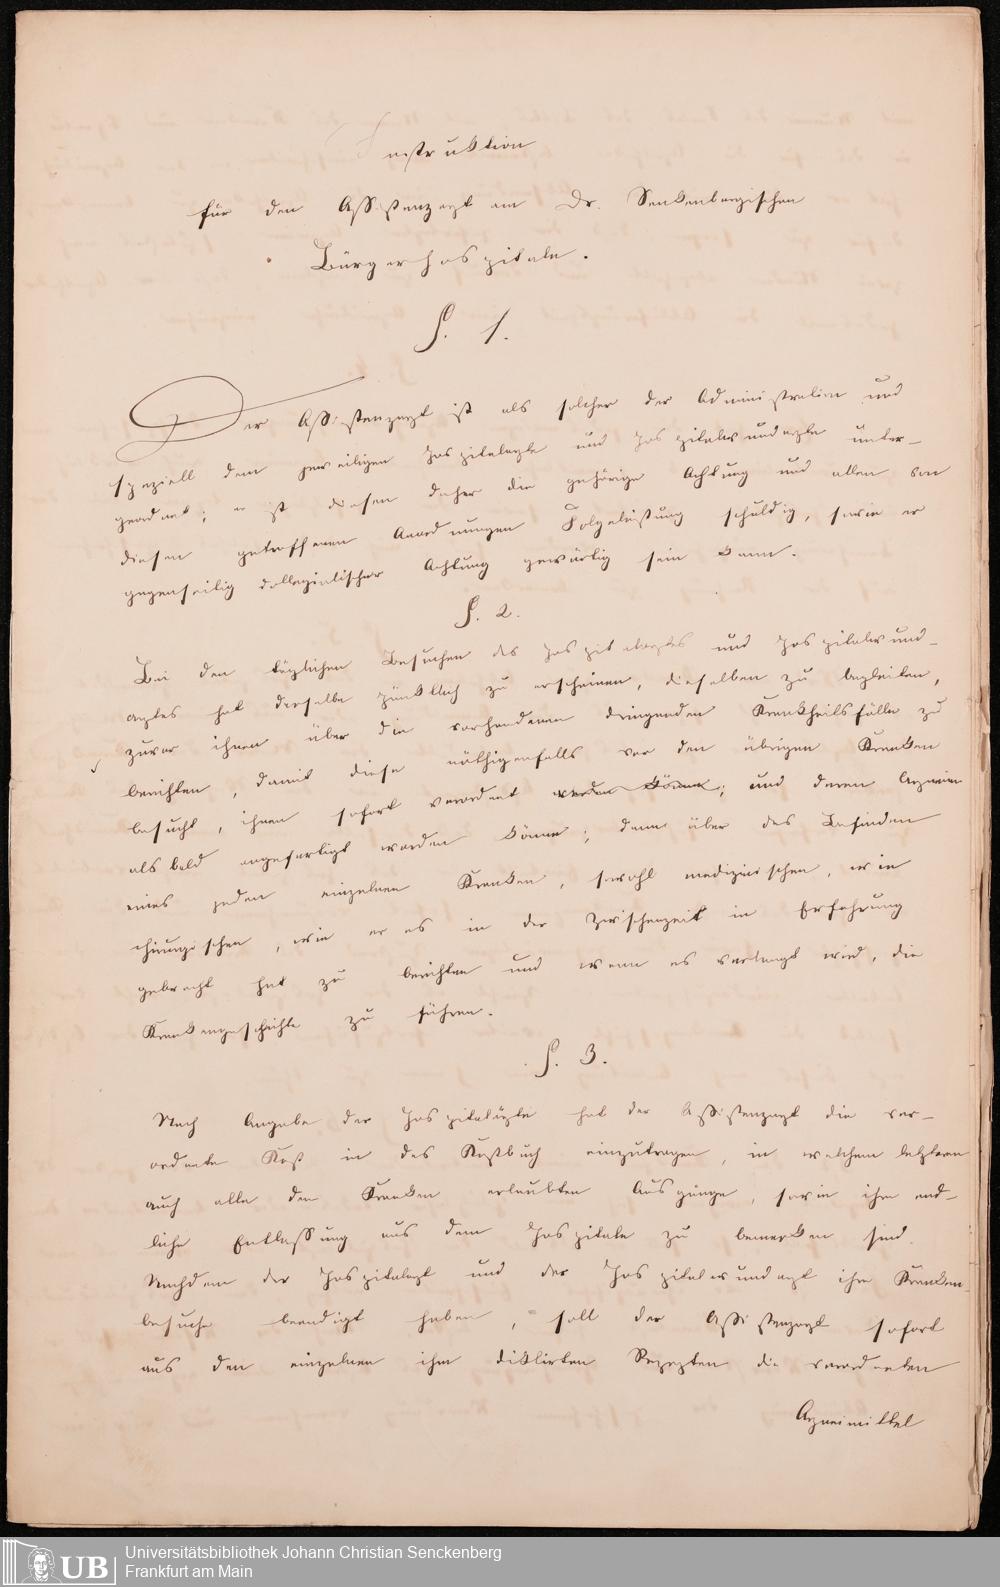 Instruktion
für den Assistenzarzt am Dr. Senkenbergischen
Bürgerhospitale.
§. 1.
Der Assistenzarzt ist als solcher der Administration und
speziell dem jeweiligen Hospitalarzte und Hospitalwundarzte unter-
geordnet; er ist diesen daher die gehörige Achtung und allen von
diesen getroffenen Anordnungen Folgeleistung schuldig, sowie er
gegenseitig kollegialischer Achtung gewärtig sein kann.
§. 2.
Bei den täglichen Besuchen des Hospitalarztes und Hospitalwund-
arztes hat derselbe pünktlich zu erscheinen, dieselben zu begleiten,
zuvor ihnen über die vorhandenen dringenden Krankheitsfälle zu
berichten, damit diese nöthigenfalls vor den übrigen Kranken
besucht, ihnen sofort verordnet werden könne; und deren Arzneien
alsbald angefertigt werden könne; dann über das Befinden
eines jeden einzelnen Kranken, sowohl medizinischen, wie
chirurgischen, wie er es in der Zwischenzeit in Erfahrung
gebracht hat zu berichten und wenn es verlangt wird, die
Krankengeschichte zu führen.
§. 3.
Nach Angabe der Hospitalärzte hat der Assistenzarzt die ver-
ordnete Kost in das Kostbuch einzutragen, in welchem letzteren
auch alle den Kranken erlaubten Ausgänge, sowie ihre end-
liche Entlassung aus dem Hospitale zu bemerken sind.
Nachdem der Hospitalarzt und der Hospitalwundarzt ihre Kranken-
besuche beendigt haben, soll der Assistenzarzt sofort
aus den einzelnen ihm diktirten Rezepten die verordneten
Arzneimittel
UB
Universitätsbibliothek Johann Christian Senckenberg
Frankfurt am Main